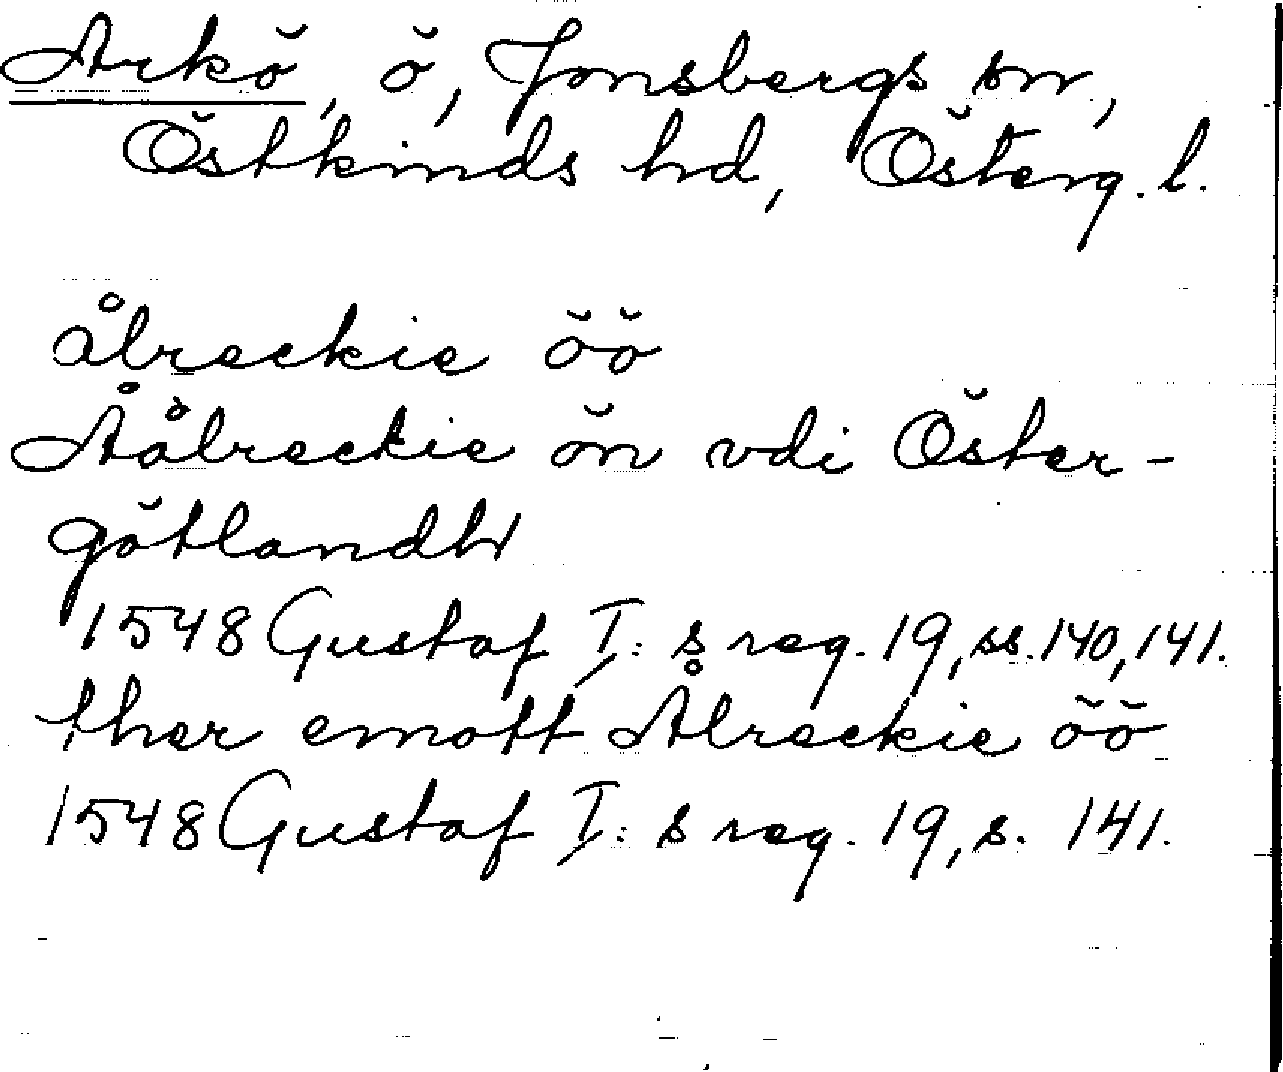 Arkö, ö, Jonsbergs sn,
Östkinds hd, Österg. l.
ålreckie öö
Åålreckie ön vdi Öster-
götlandh
1548 Gustaf I: s reg. 19, ss. 140, 141.
ther emott Ålreckie öö
1548 Gustaf I: s reg. 19, s. 141.